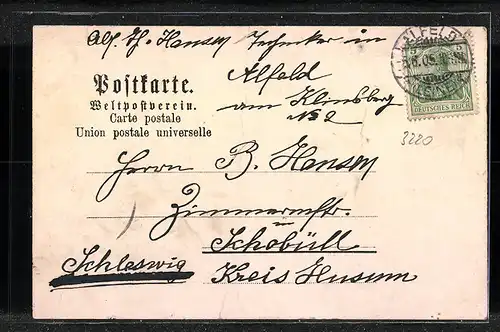 Abs. Th. Hansen Techniker in
Alfeld
am Klinsberg
No 2
Postkarte.
Weltpostverein.
Carte postale
Union postale universelle
ALFELD
(LEINE)
5 5
DEUTSCHES REICH
3220
Herrn B. Hansen
Zimmermstr.
in
Schobüll
Schleswig
Kreis Husum